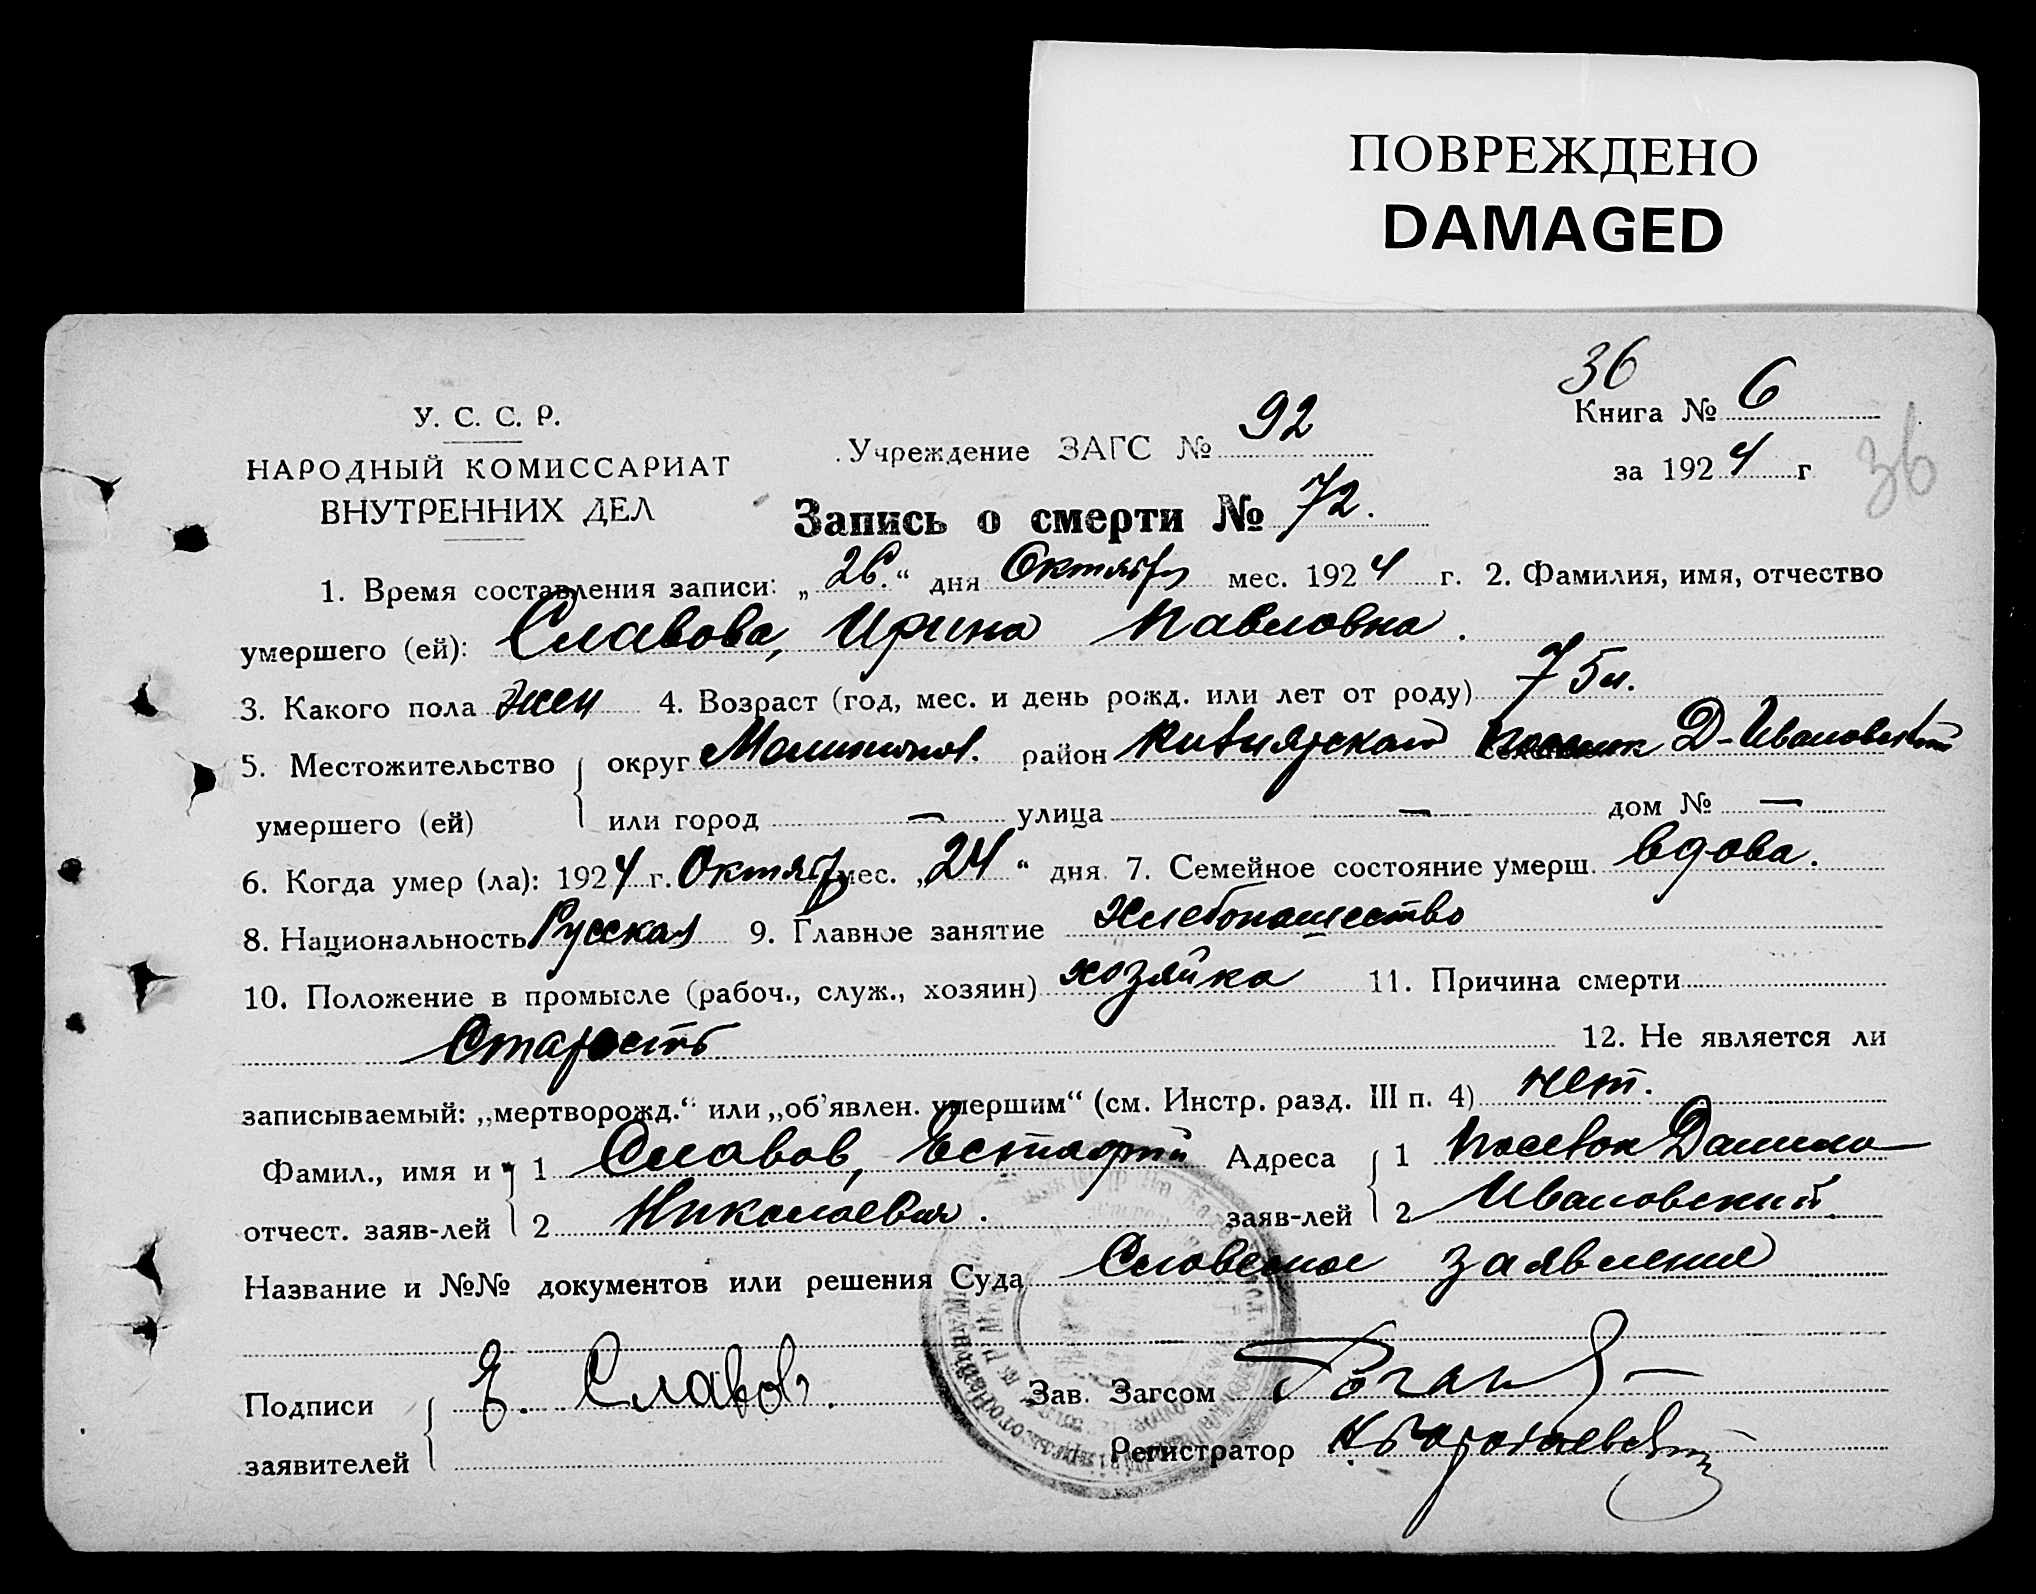 ПОВРЕЖДЕНО
DAMAGED
36
У. С. С. Р.
НАРОДНЫЙ КОМИССАРИАТ
ВНУТРЕННИХ ДЕЛ
Учреждение ЗАГС № 92
Книга № 6
за 1924 г
36
Запись о смерти № 72.
1. Время составления записи: „26.“ дня Октябр мес. 1924 г. 2. Фамилия, имя, отчество
умершего (ей): Славова, Ирина Павловна.
3. Какого пола жен 4. Возраст (год, мес. и день рожд. или лет от роду) 75 л.
5. Местожительство округ район Поселок Д-Ивановский
умершего (ей) или город — улица — дом № —
6. Когда умер (ла): 1924 г. Октябр мес. „24“ дня 7. Семейное состояние умерш. вдова.
8. Национальность Русская 9. Главное занятие Хлебопашество
10. Положение в промысле (рабоч., служ., хозяин) хозяйка 11. Причина смерти
Старость 12. Не является ли
записываемый: „мертворожд.“ или „об’явлен. умершим“ (см. Инстр. разд. III п. 4) нет.
Фамил., имя и 1 Славов, Естафий Адреса 1 Поселок Данило
отчест. заяв-лей 2 Николаевич. заяв-лей 2 Ивановский.
Название и №№ документов или решения Суда Словесное заявление
Подписи Е. Славов. Зав. Загсом
заявителей Регистратор